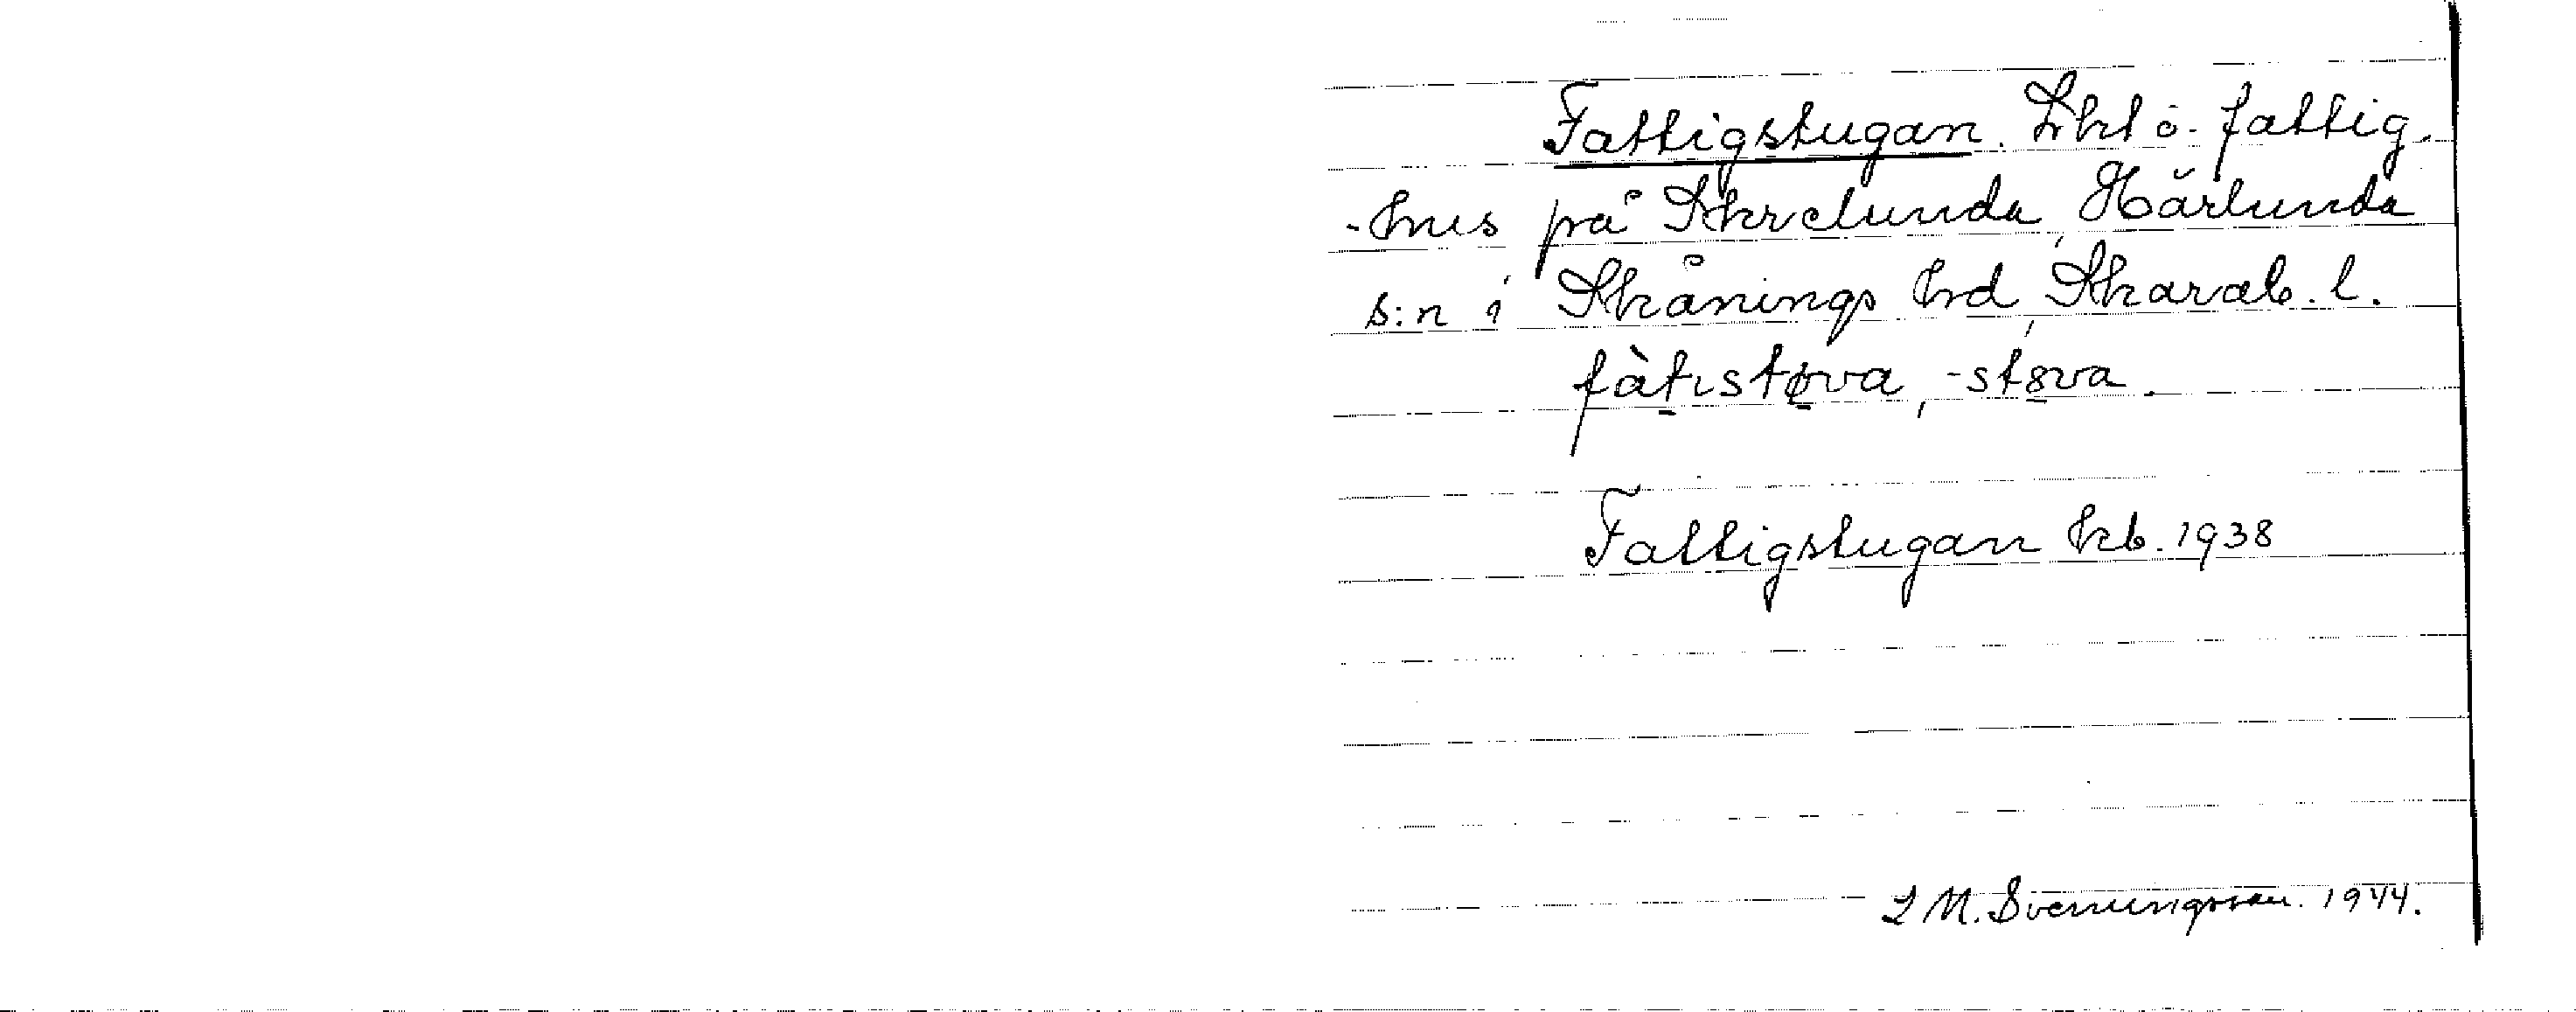 Fattigstugan. Lht o. fattig-
-hus på Skrelunda, Härlunda
s:n i Skånings hd, Skarab. l.
fàtɩstøva, -stɵva.
Fattigstugan kb. 1938
L M. Svenungsson. 1944.